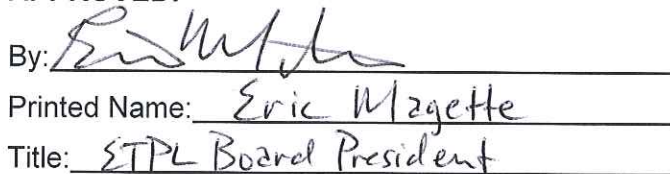 By:
Printed Name: Eric Magette
Title: ETPL Board President